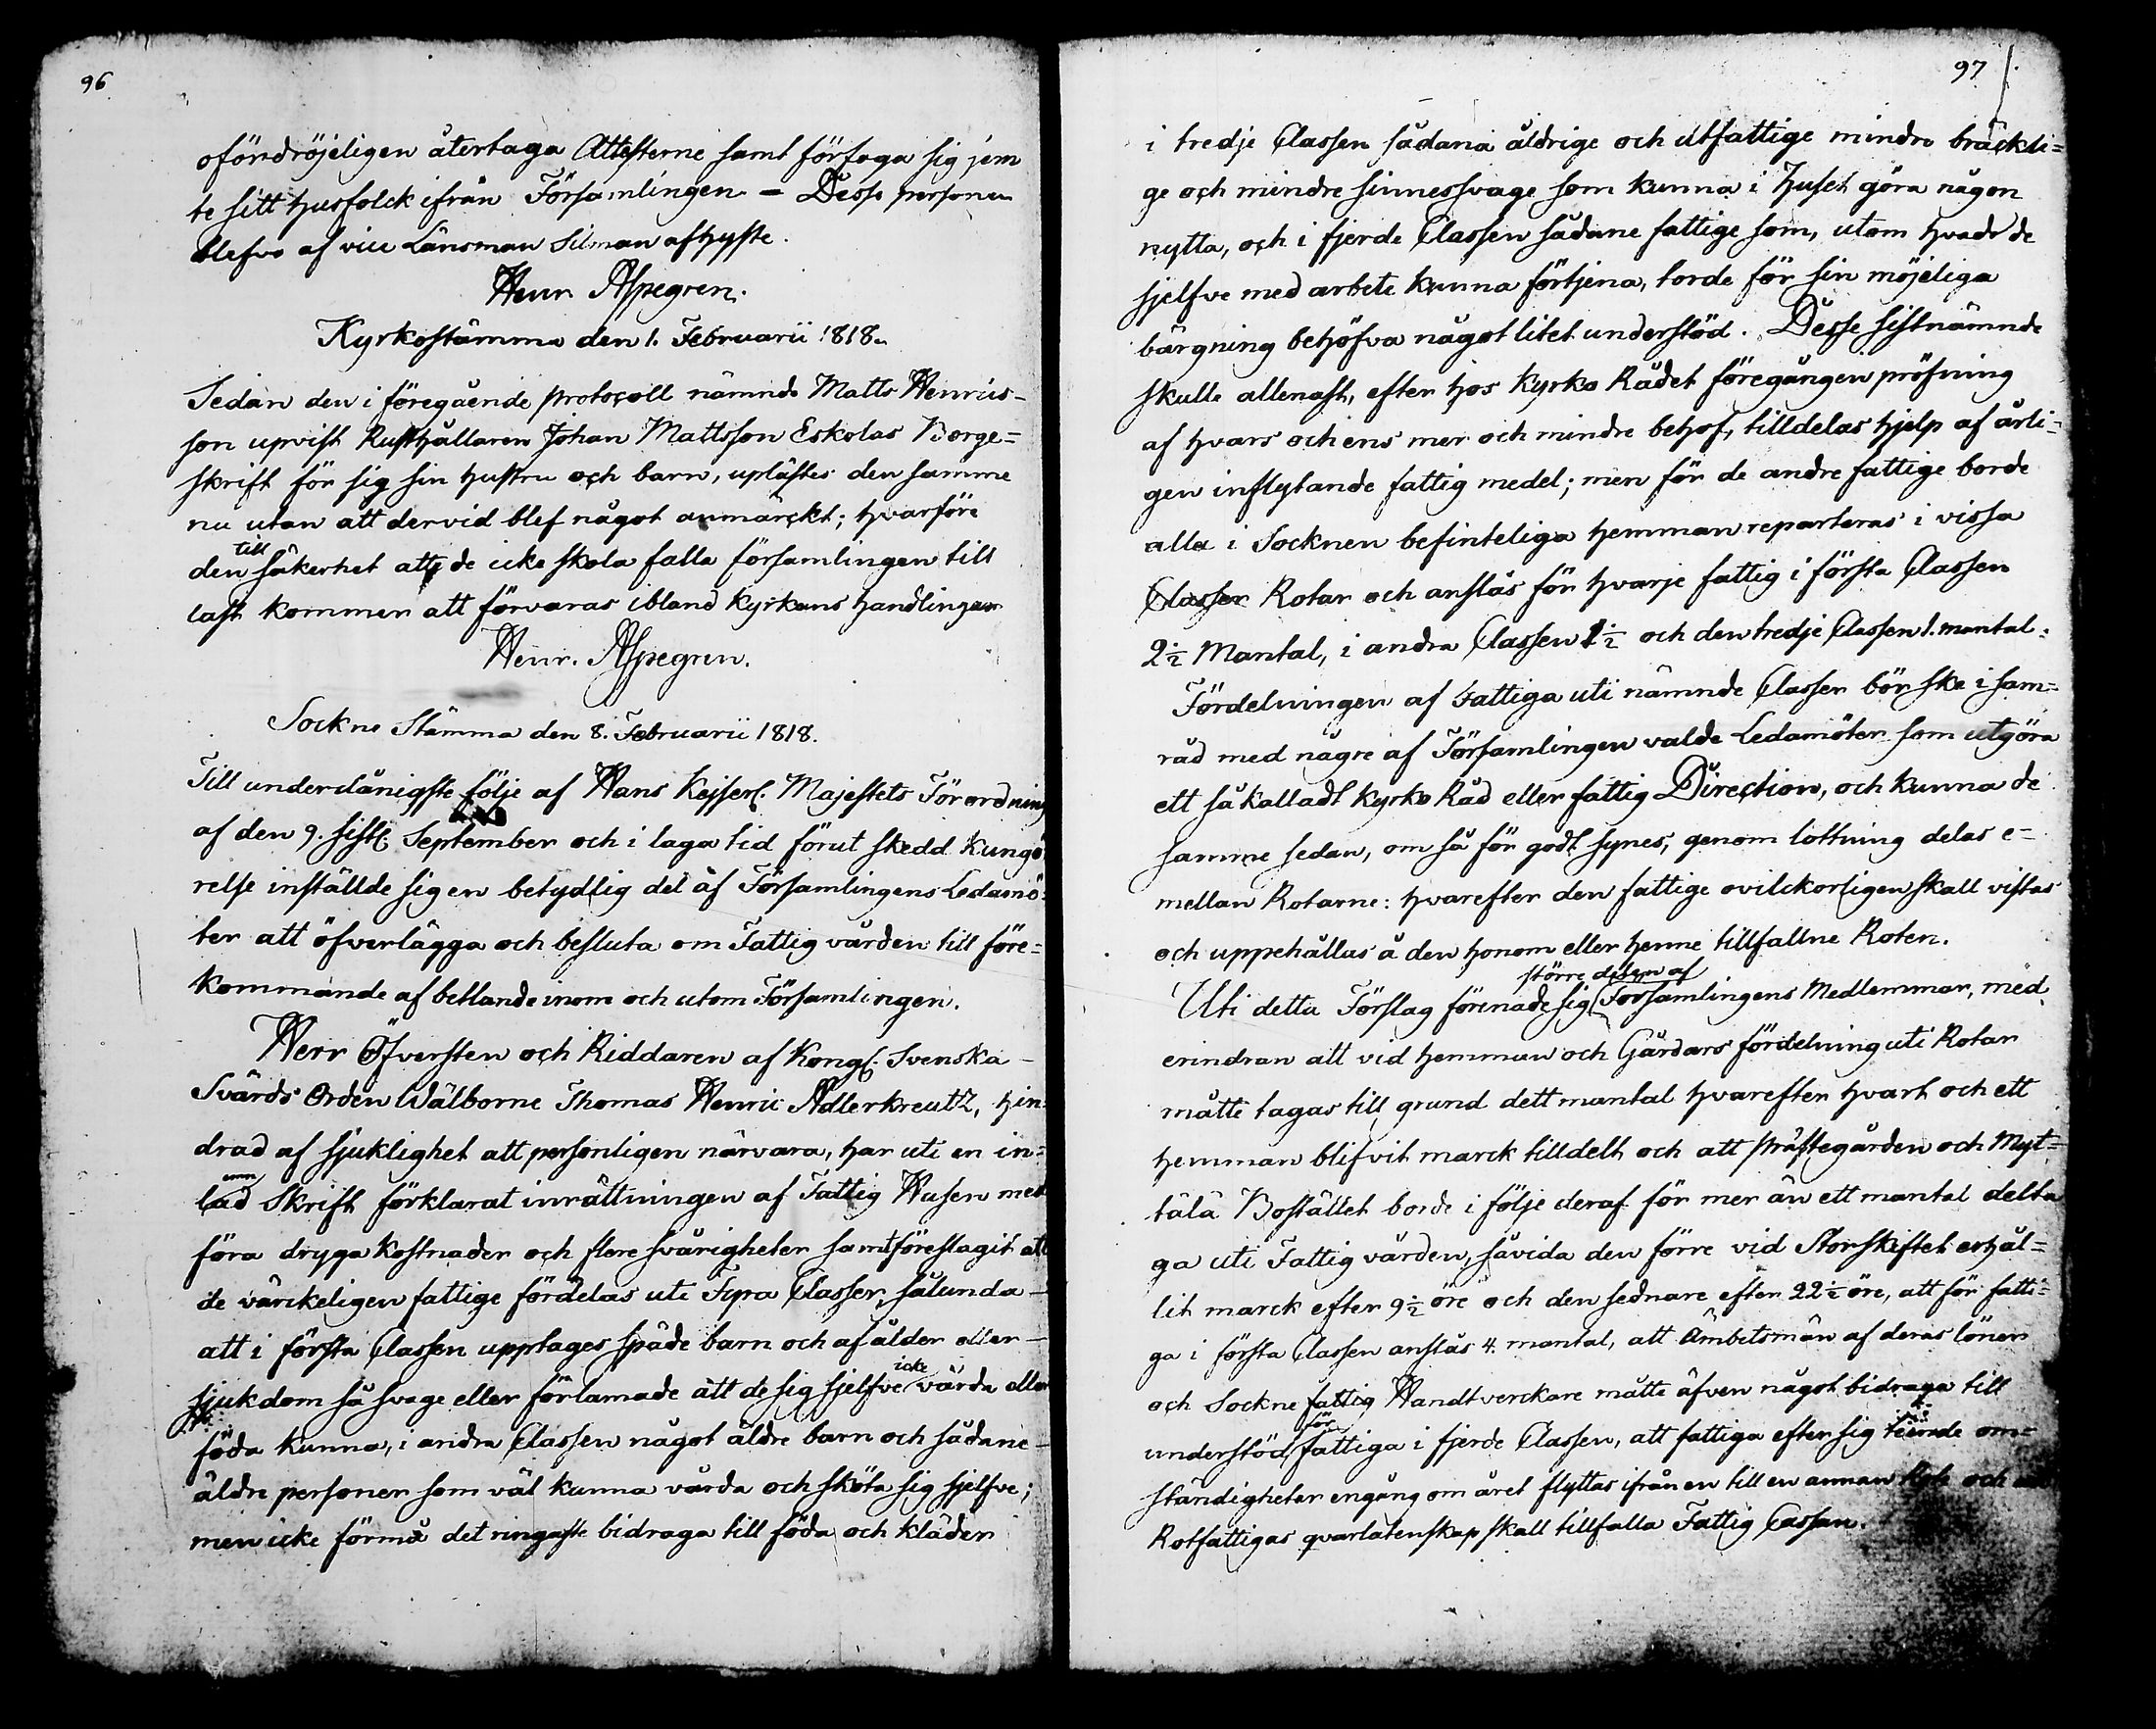 96
ofördröjeligen återtaga Attesterne samt förfoga sig jem
te sitt husfolck ifrån Församlingen = Desse personer
blefvo af vice Länsman Silman afhyste.
Henr Aspegren.
Kyrkostämma den 1. Februarii 1818.
Sedan den i föregående protocoll nämnde Matts Henrics-
son upvist Rusthållaren Johan Mattsson Eskolas Borge=
skrift för sig sin hustru och barn, uplästes den samme
nu utan att dervid blef något anmärckt; hvarföre
den till säkerhet att de icke skola falla församlingen till
last kommer att förvaras ibland Kyrkans handlingar
Henr. Aspegren.
Sockne Stämma den 8. Februarii 1818.
Till underdånigste följe af Hans Kejserl. Majestets Förordning
af den 9. sistl. September och i laga tid förut skedd kungö
relse inställde sig en betydlig del af Församlingens Ledamö=
ter att öfverlägga och besluta om Fattigvården till före=
kommande af bettlande inom och utom Församlingen.
Herr Öfversten och Riddaren af Kongl. Svenska
Svärds Orden Wälborne Thomas Henric Adlerkreutz, hin=
drad af sjuklighet att personligen närvara, har uti en in=
lemnad Skrift förklarat inrättningen af Fattig Husen med
föra dryga kostnader och flere svårigheter samt föreslagit att
de värckeligen fattige fördelas uti Fyra Classer, sålunda
att i första Classen upptages späde barn och af ålder eller
sjukdom så svage eller förlamade att de sig sjelfve icke vårda eller
föda kunna, i andra Classen något äldre barn och sådane
äldre personer som väl kunna vårda och sköta sig sjelfve;
men icke förmå det ringaste bidraga till föda och kläder
97
i tredje Classen sådana åldrige och utfattige mindre bräckli=
ge och mindre sinnessvage som kunna i huset göra någon
nytta, och i fjerde Classen sådane fattige som, utom hvad de
sjelfve med arbete kunna förtjena, torde för sin möjeliga
bärgning behöfva något litet understöd. Desse sistnämnde
skulle allenast, efter hos Kyrko Rådet föregången pröfning
af hvars och ens mer och mindre behof, tilldelas hjelp af årli=
gen inflytande fattig medel; men för de andre fattige borde
alla i Socknen befinteliga hemman reparteras i vissa
Classer Rotar och anslås för hvarje fattig i första Classen
2 1/2 Mantal, i andra Classen 1 1/2 och den tredje Classen 1. mantal.
Fördelningen af Fattiga uti nämnde Classer bör ske i sam=
råd med någre af Församlingen valde Ledamöter som utgöra
ett så kalladt Kyrko Råd eller fattig Direction, och kunna de
samme sedan, om så för godt synes, genom lottning delas e=
mellan Rotarne: hvarefter den fattige ovilckorligen skall vistas
och uppehållas å den honom eller henne tillfallne Roten.
Uti detta Förslag förenade sig större delen af Församlingens Medlemmar, med
erindran att vid hemman och Gårdars fördelning uti Rotar
måtte tagas till grund dett mantal hvarefter hvart och ett
hemman blifvit marck tilldelt och att Prästegården och Myt=
tälä Bostället borde i följe deraf för mer än ett mantal delta
ga uti Fattigvården, såvida den förre vid Storskiftet erhål=
lit marck efter 9 1/2 öre och den sednare efter 22 1/2 öre, att för fatti=
ga i första Classen anslås 4. mantal, att Ämbetsmän af deras löner
och Sockne fattig Handtverckare måtte äfven något bidraga till
understöd för fattiga i fjerde Classen, att fattiga efter sig om=
ständigheter engång om året flyttas ifrån en till en annan Rote och
Rotfattigas qvarlåtenskap skall tillfalla Fattig Cassan.